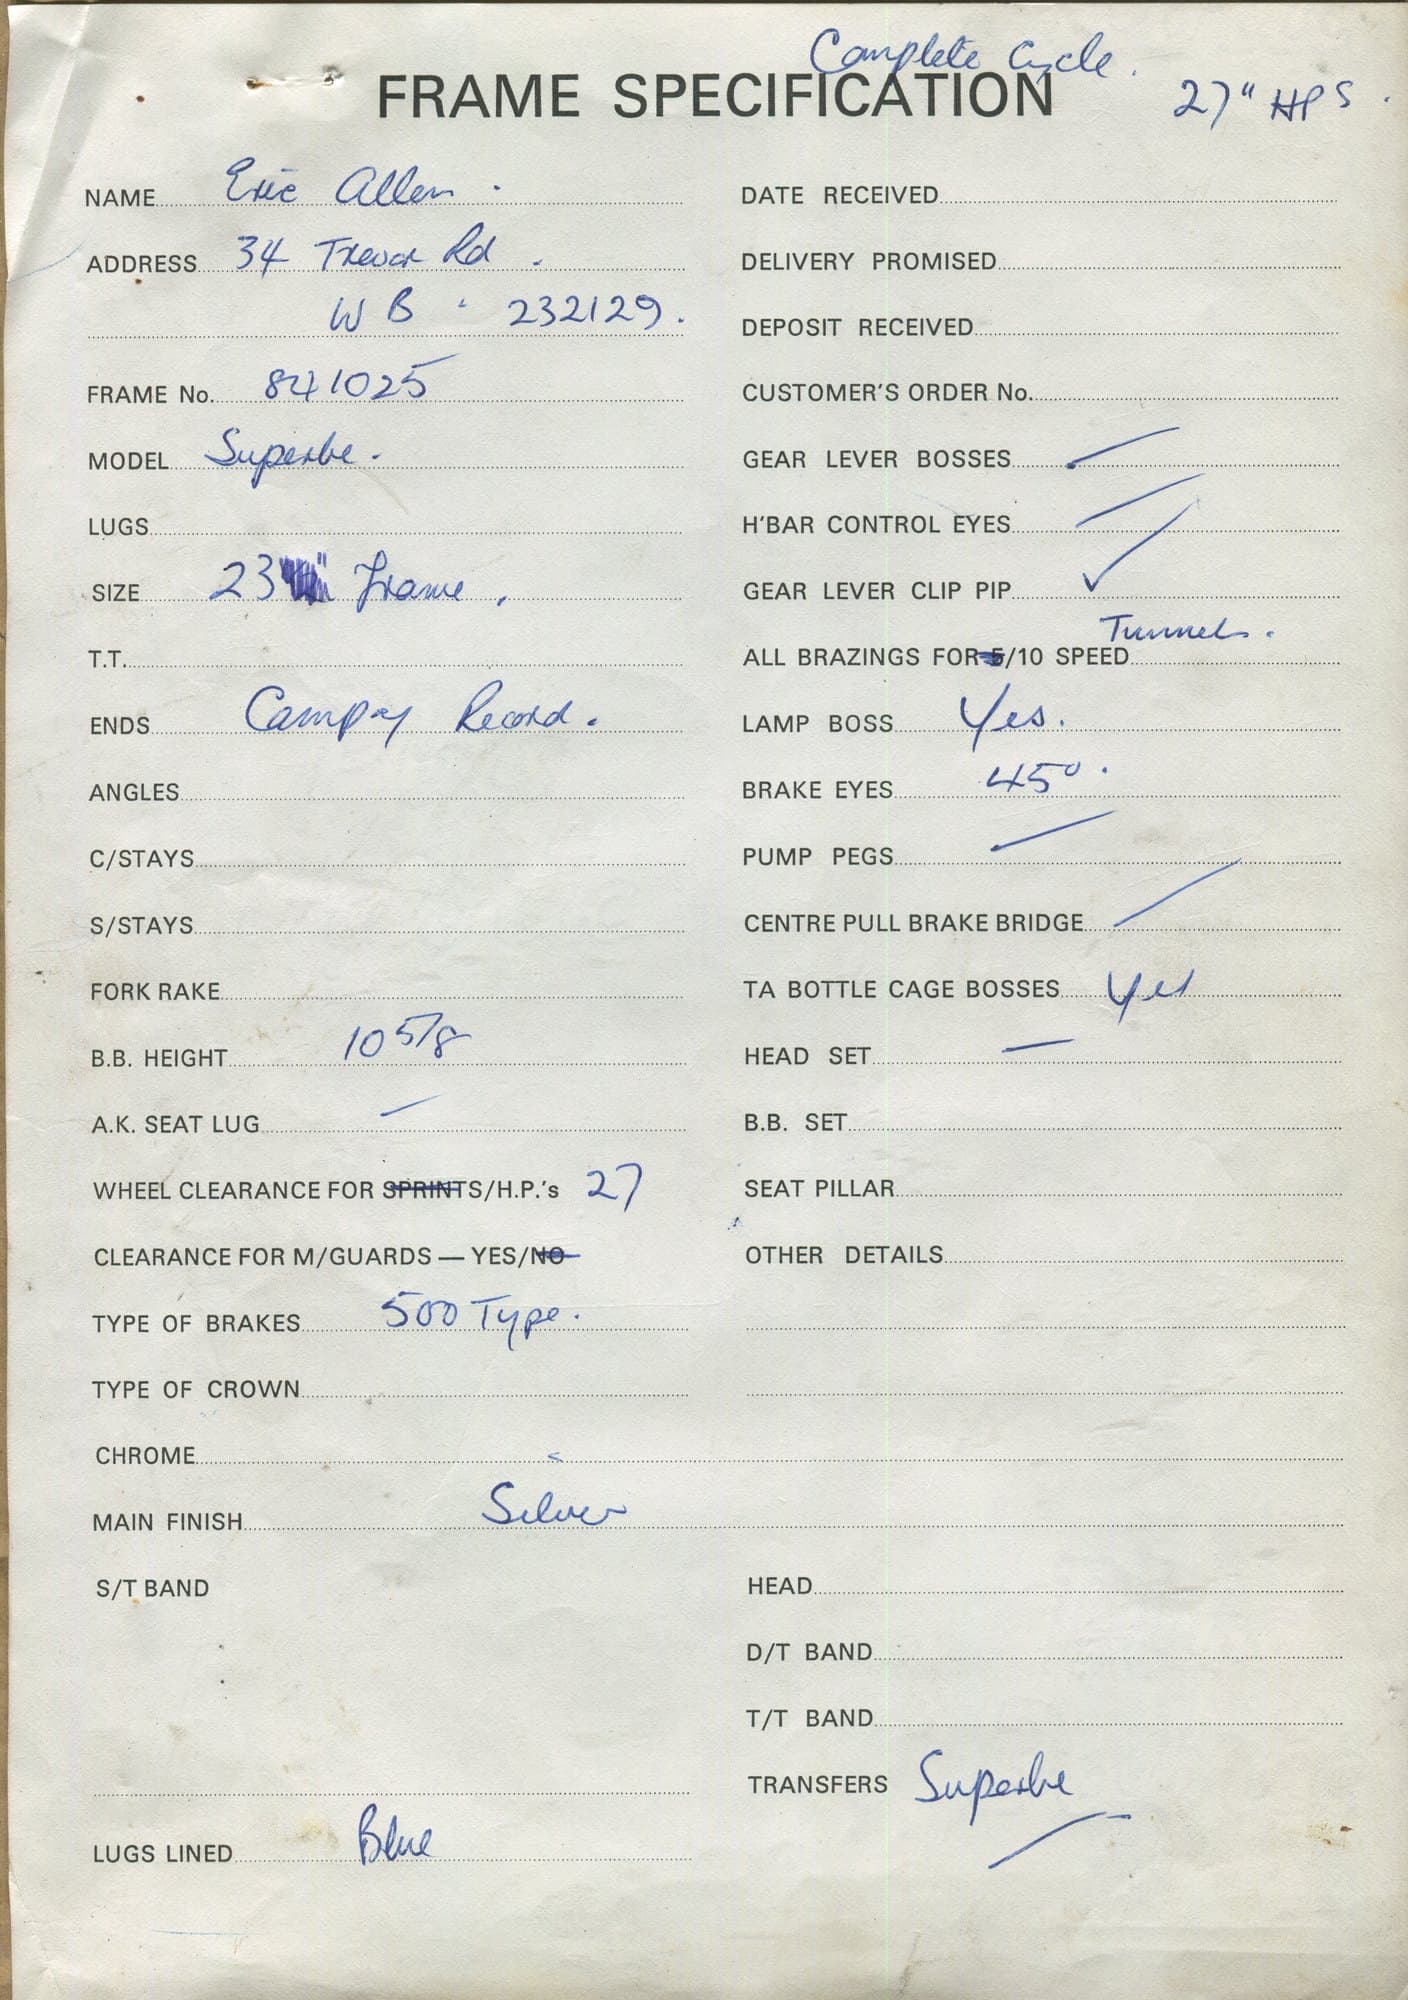 Complete Cycle.
FRAME SPECIFICATION
27" HPS.
NAME Eric Allen.
ADDRESS 34 Trevor Rd.
WB. 232129.
FRAME No. 841025
MODEL Superbe.
LUGS
SIZE 23" Frame.
T.T.
ENDS Campag Record.
ANGLES
C/STAYS
S/STAYS
FORK RAKE
B.B. HEIGHT 10 5/8
A.K. SEAT LUG —
WHEEL CLEARANCE FOR SPRINTS/H.P.'s 27
CLEARANCE FOR M/GUARDS — YES/NO
TYPE OF BRAKES 500 Type.
TYPE OF CROWN
CHROME
MAIN FINISH Silver
S/T BAND
LUGS LINED Blue
DATE RECEIVED
DELIVERY PROMISED
DEPOSIT RECEIVED
CUSTOMER'S ORDER No.
GEAR LEVER BOSSES —
H'BAR CONTROL EYES —
GEAR LEVER CLIP PIP ✓
Tunnels.
ALL BRAZINGS FOR 5/10 SPEED
LAMP BOSS Yes.
BRAKE EYES 45°.
PUMP PEGS —
CENTRE PULL BRAKE BRIDGE —
TA BOTTLE CAGE BOSSES Yes
HEAD SET —
B.B. SET
SEAT PILLAR
OTHER DETAILS
HEAD
D/T BAND
T/T BAND
TRANSFERS Superbe